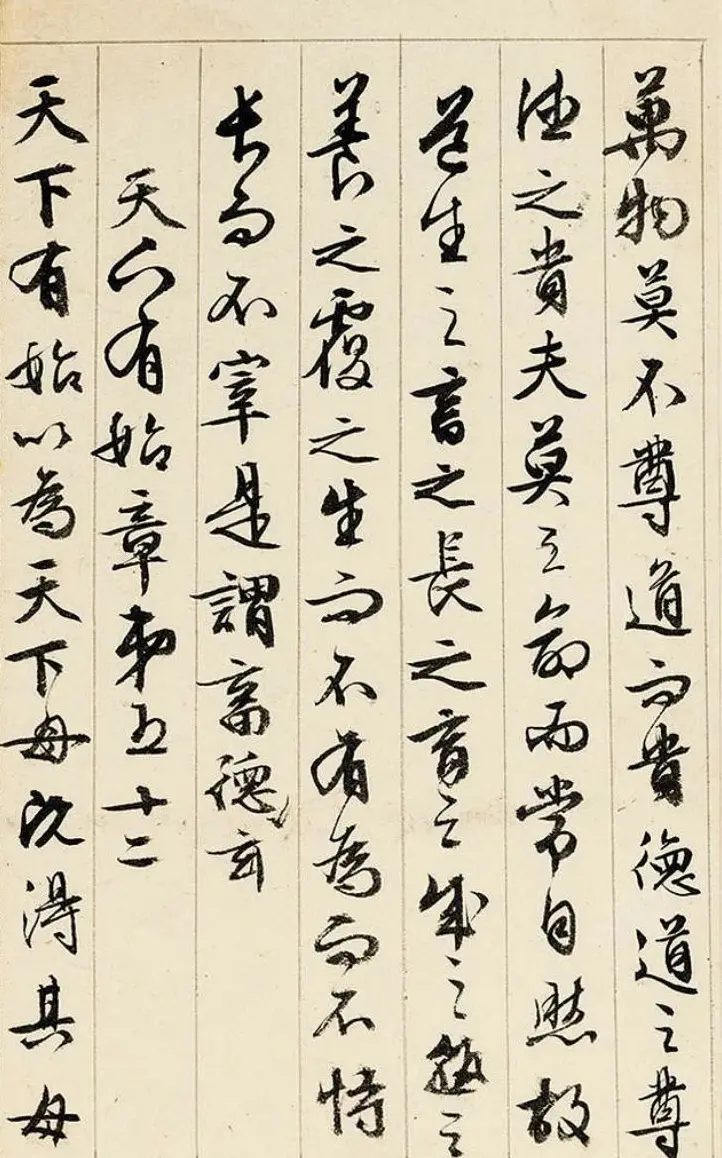 萬物莫不尊道而貴德道之尊
德之貴夫莫之命而常自然故
道生之畜之長之育之成之熟之
養之覆之生而不有為而不恃
長而不宰是謂畜德玄
天下有始章第五十二
天下有始以為天下母既得其母